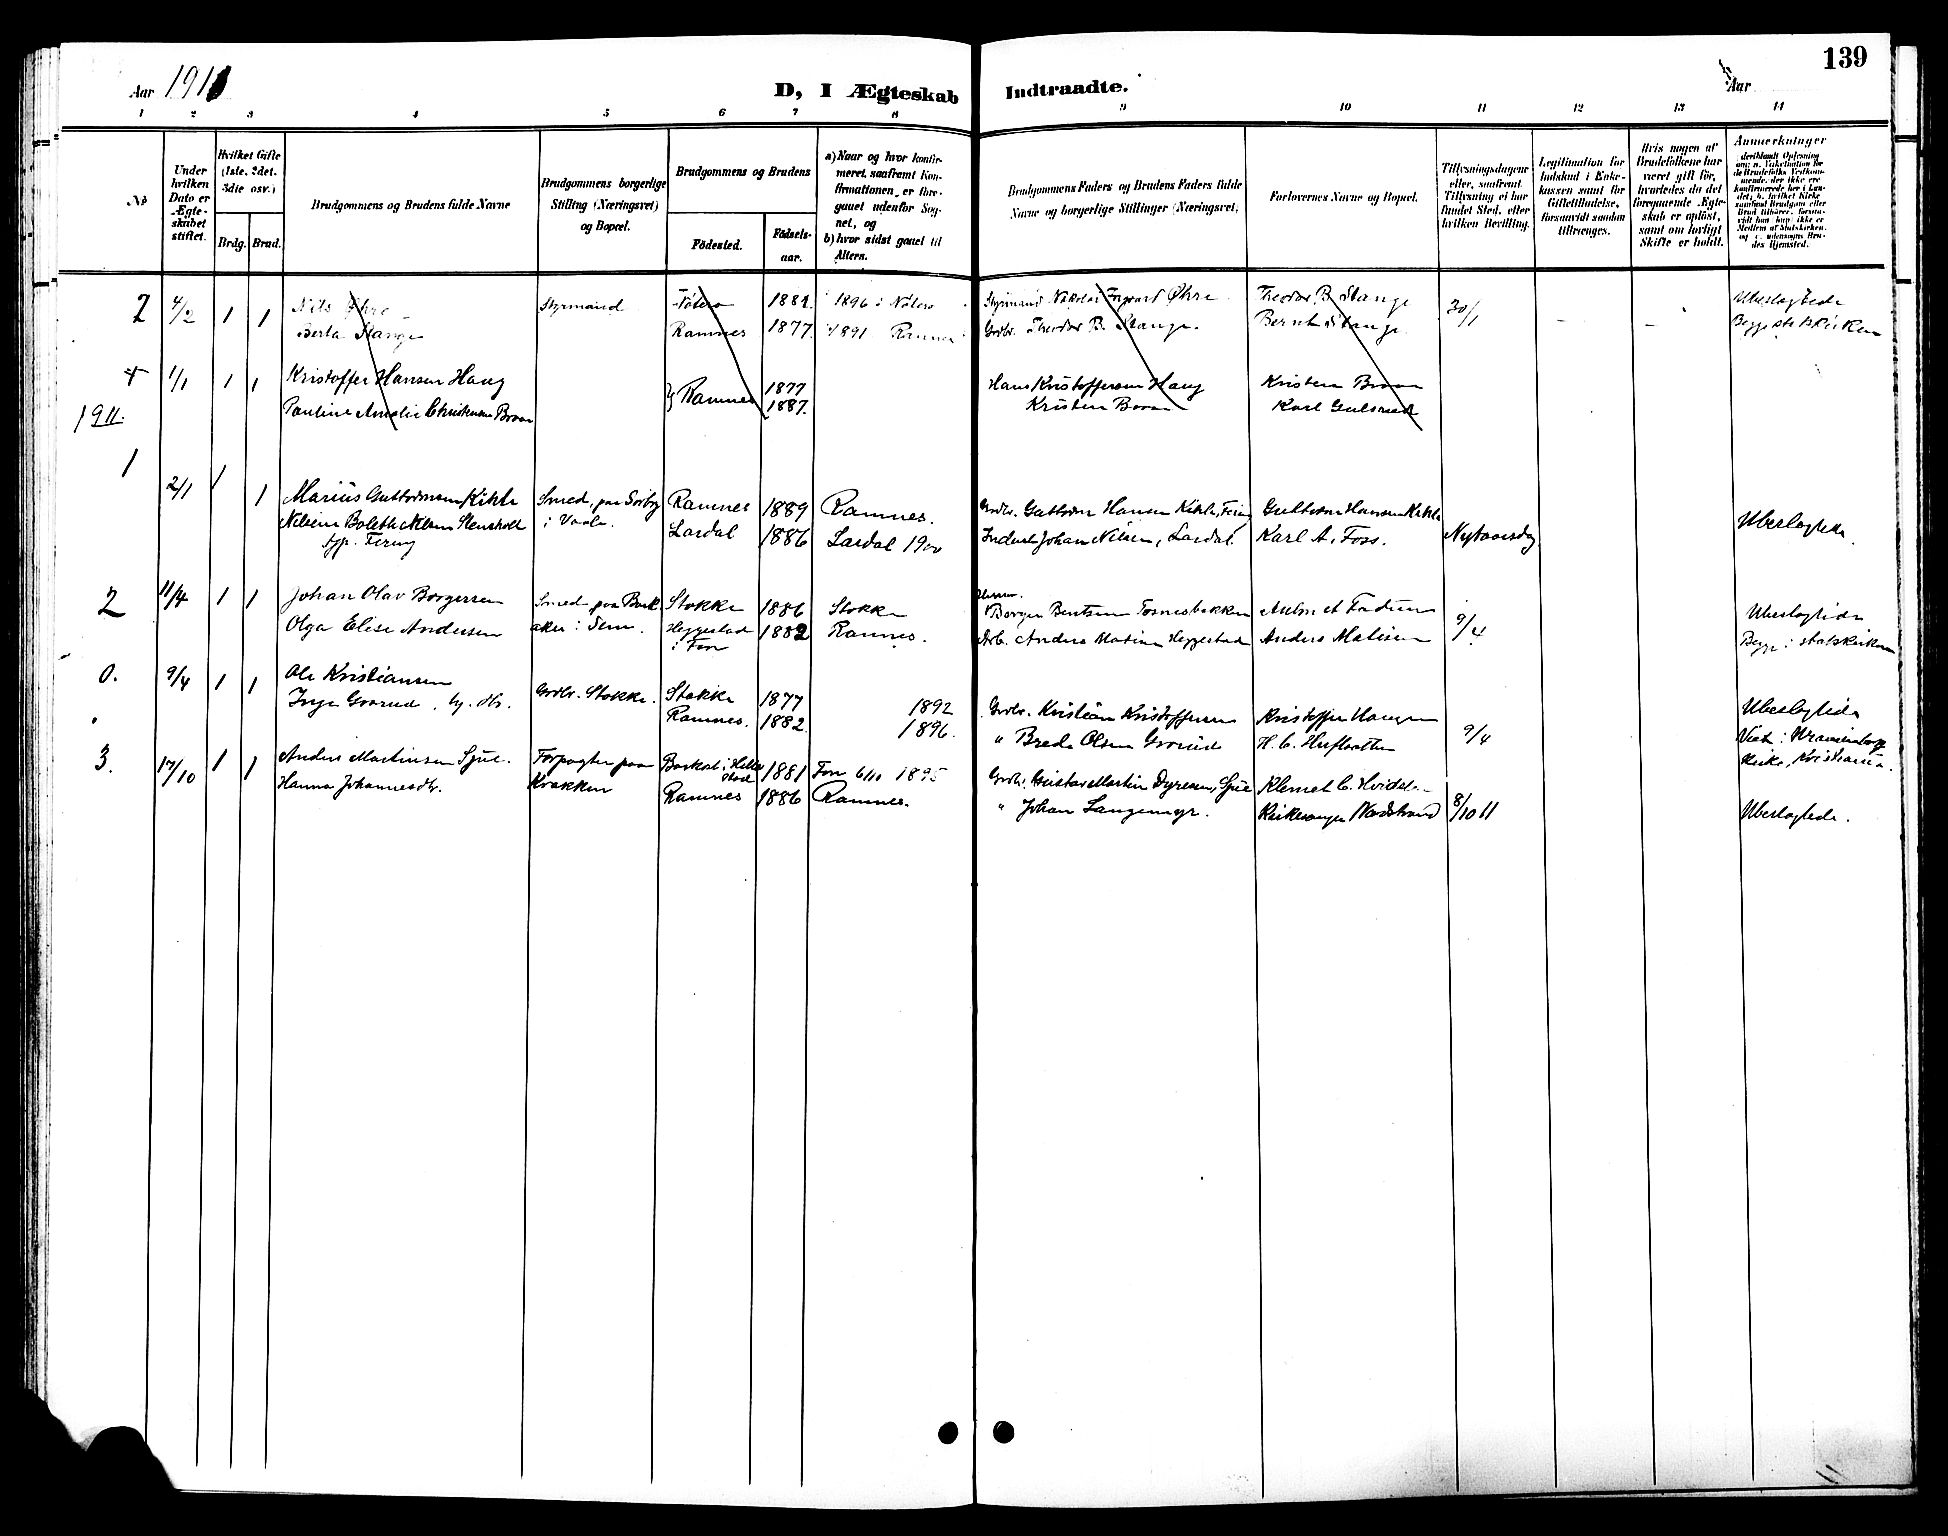 139
Aar 1911
D, I Ægteskab Indtraadte.
Aar
1 2 3 4 5 6 7 8 9 10 11 12 13 14
No
Under hvilken Dato er Ægteskabet stiftet.
Hvilket Gifte (1ste, 2det, 3die osv.)
Brdg. Brud.
Brudgommens og Brudens fulde Navne
Brudgommens borgerlige Stilling (Næringsvei) og Bopæl.
Brudgommens og Brudens
Födested.
Födsels-aar.
a) Naar og hvor konfirmeret, saafremt Konfirmationen er foregaaet udenfor Sognet, og
b) hvor sidst gaaet til Alters.
Brudgommens Faders og Brudens Faders fulde Navne og borgerlige Stillinger (Næringsvei)
Forlovernes Navne og Bopæl.
Tillysningsdagene eller, saafremt Tillysning ei har fundet Sted, efter hvilken Bevilling.
Legitimation for Indskud i Enkekassen samt for Giftetilladelse, forsaavidt saadan tiltrænges.
Hvis nogen af Brudefolkene har været gift før, hvorledes da det foregaaende Ægteskab er opløst, samt om lovligt Skifte er holdt.
Anmærkninger
2 4/2 1 1 Nils Økre Styrmand Nøterø 1881 1896 i Nøterø Styrmand Nikolai Ingvart Økre Theodor B. Stange 30/1 - - Ubeslægtede
Berta Stange Ramnes 1877 1891 Ramnes Grdbr. Theodor B. Stange. Bernt Stange Begge i statskirken
4 1/1 1 1 Kristoffer Hansen Haug } Ramnes 1877 Hans Kristoffersen Haug Kristen Broen
Pauline Amalie Christensen Broen 1887. Kristen Broen Karl Gulsrud
1911.
1 2/1 1 1 Marius Guttormsen Kikle Smed, paa Sørby Ramnes 1889 Ramnes. Grdbr. Guttorm Hansen Kikle, Firing Guttorm Hansen Kikle
Nilsine Boleth Nilsen Stensholt i Vaale. Lardal 1886 Lardal 1900 Inderst Johan Nilsen, Lardal. Karl A. Foss. Nytaarsdag Ubeslægtede.
2 11/4 1 1 Johan Olav Borgersen Smed paa Bark- Stokke 1886 Stokke Borger Bentsen Fosnesbakken 9/4 Ubeslægtede
Olga Elise Andersen aker i Sem. Heggestad i Fon 1882 Ramnes. Arb. Anders Matisen Heggestad Anders Matisen Begge i statskirken
0. 9/4 1 1 Ole Kristiansen Grdbr. Stokke. Stokke 1877 1892 Grdbr. Kristian Kristoffersen Kristoffer Haugen 9/4 Ubeslægtede
Inga Gvorud. Ramnes. 1882. 1896. " Brede Olsen Gvorud Viet i
Kirke, Kristiania.
3. 17/10 1 1 Anders Martinsen Sjue. Forpagter paa 1881 Fon 6/10 1895 Grdbr. Gustav Martin Dyresen, Sjue
Hanna Johannesdtr. Krakken Ramnes 1886 Ramnes. " Johan Langemyr. Kirkesanger Nordstrand 8/10 11 Ubeslægtede.